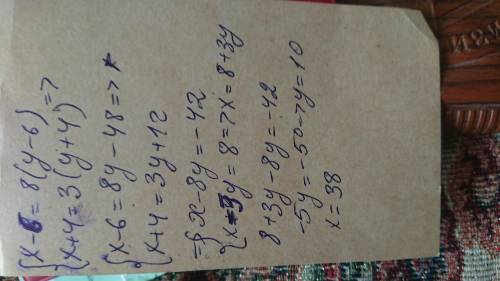 {x-6=8(y-6) =>
{x+4=3(y+4)
{x-6=8y-48 =>
{x+4=3y+12
={x-8y=-42
{x-3y=8=>x=8+3y
8+3y-8y=-42
-5y=-50->y=10
x=38